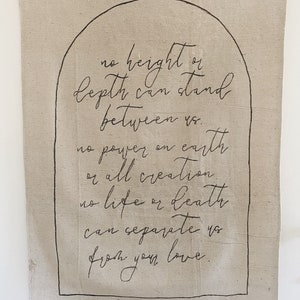 no height or
depth can stand
between us.
no power on earth
or all creation
no life or death
can separate us
from your love.